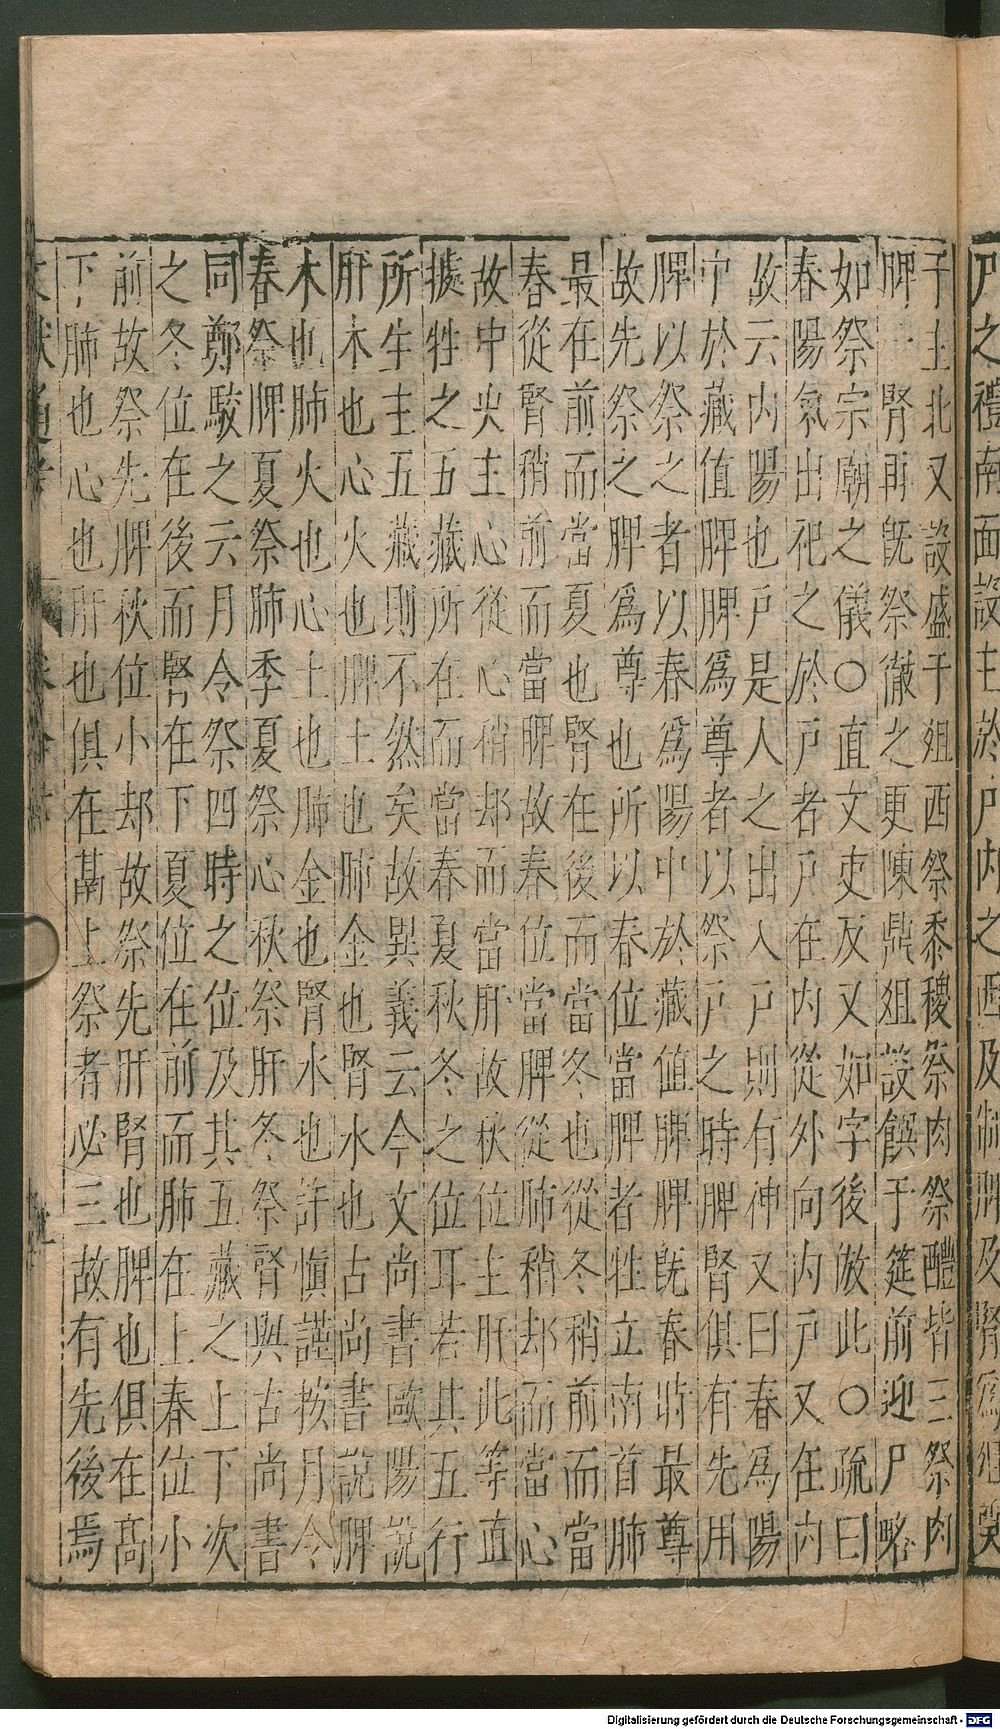 戶之禮南面設主於戶內之西及制脾及腎爲俎奠
于主北又設盛于俎西祭黍稷祭肉祭醴皆三祭肉
脾一腎再既祭徹之更陳鼎俎設饌于筵前迎尸畧
如祭宗廟之儀〇直丈吏反又如字後倣此〇疏曰
春陽氣出祀之於戶者戶在內從外向內戶又在內
故云內陽也戶是人之出入戶則有神又曰春爲陽
中於藏值脾脾爲尊者以祭戶之時脾腎俱有先用
脾以祭之者以春爲陽中於藏值脾脾既春時最尊
故先祭之脾爲尊也所以春位當脾者牲立南首肺
最在前而當夏也腎在後而當冬也從冬稍前而當
春從腎稍前而當脾故春位當脾從肺稍却而當心
故中央主心從心稍却而當肝故秋位主肝此等直
據牲之五藏所在而當春夏秋冬之位耳若其五行
所生主五藏則不然矣故異義云今文尚書歐陽說
肝木也心火也脾土也肺金也腎水也古尚書說脾
木也肺火也心土也肺金也腎水也許慎謹按月令
春祭脾夏祭肺季夏祭心秋祭肝冬祭腎與古尚書
同鄭駁之云月令祭四時之位及其五藏之上下次
之冬位在後而腎在下夏位在前而肺在上春位小
前故祭先脾秋位小却故祭先肝腎也脾也俱在髙
下肺也心也肝也俱在鬲上祭者必三故有先後焉
Digitalisierung gefördert durch die Deutsche Forschungsgemeinschaft - DFG